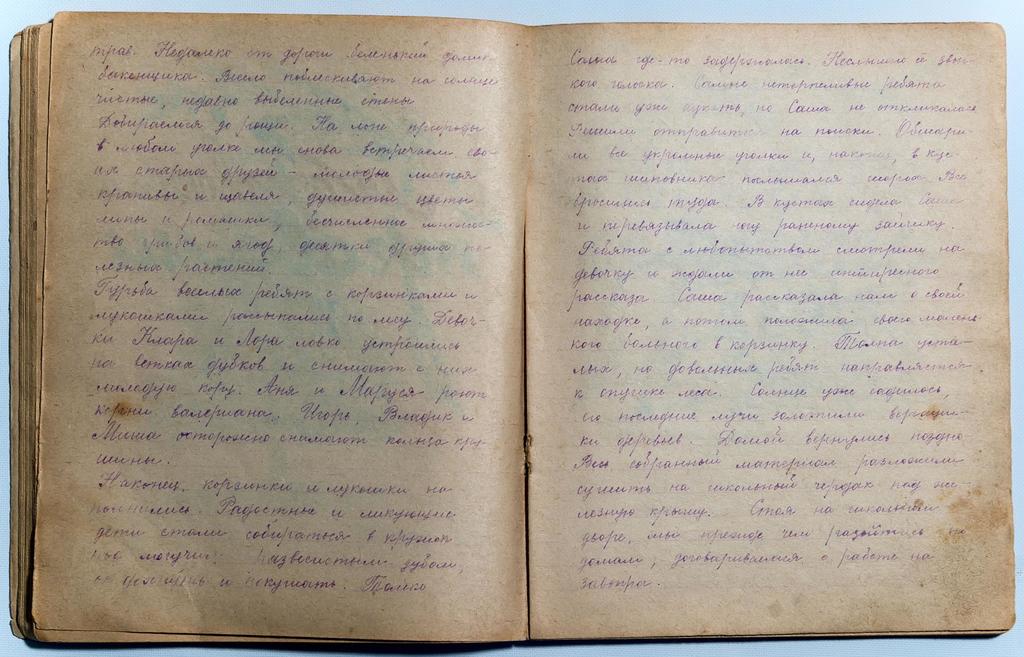 трав. Недалеко от дороги беленький домик
бакенщика. Весело поблескивают на солнце
чистые, недавно выбеленные стены
Добираемся до рощи. На лоне природы
в любом уголке мы снова встречаем сво-
их старых друзей - молодые листья
крапивы и щавеля, душистые цветы
липы и ромашки, бесчисленное множес-
тво грибов и ягод, десятки других по-
лезных растений.
Гурьба веселых ребят с корзинками и
лукошками рассыпались по лесу. Девоч-
ки Клара и Лора ловко устроились
на ветках дубков и снимают с них
молодую кору. Аня и Маруся роют
корни валериана. Игорь, Владик и
Миша осторожно снимают кольца кру-
шины.
Наконец, корзинки и лукошки на
полнились. Радостные и ликующие
дети стали собираться в кружок
под могучим развесистым дубом,
и покушать. Только
Саша где-то задержалась. Неслышно её звон-
кого голоска. Самые нетерпеливые ребята
стали уже аукать, но Саша не откликалась
Решили отправиться на поиски. Обшари-
ли все укромные уголки и, наконец, в кус-
тах шиповника послышался шорох. Все
бросились туда. В кустах сидела Саша
и перевязывала ногу раненому зайчику.
Ребята с любопытством смотрели на
девочку и ждали от нее интересного
рассказа. Саша рассказала нам о своей
находке, а потом положила своего малень
кого больного в корзинку. Толпа уста-
лых, но довольных ребят направляется
к опушке леса. Солнце уже садилось,
его последние лучи золотили верхуш-
ки деревьев. Домой вернулись поздно
Весь собранный материал разложили
сушить на школьный чердак под же-
лезную крышу. Стоя на школьном
дворе, мы прежде чем разойтись по
домам, договаривались о работе на
завтра.